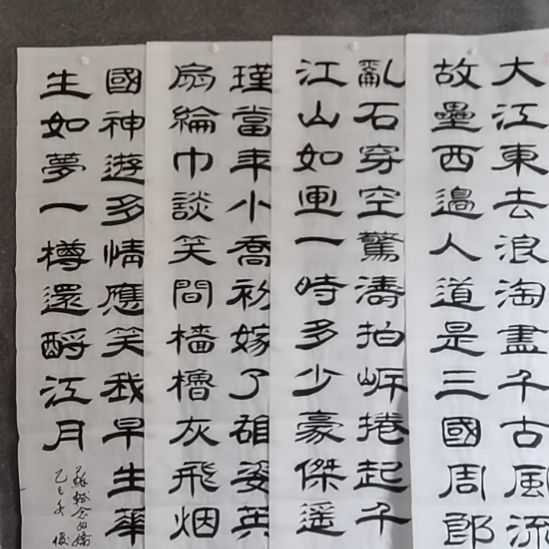 大江東去浪淘盡千古風流
故壘西邊人道是三國周郎
亂石穿空驚濤拍岍捲起千
江山如画一時多少豪傑遥
瑾當年小喬初嫁了雄姿英
扇綸巾談笑間檣櫓灰飛烟
國神遊多情應笑我早生華
生如夢一樽還酹江月
蘇軾念奴嬌